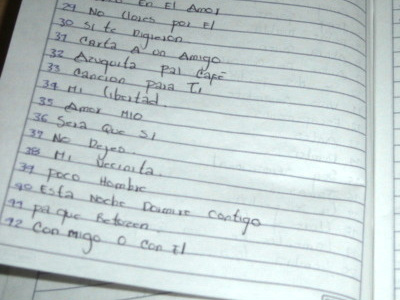 En El Amor
29 No LLores por El
30 Si te Digeron
31 Carta A un Amigo
32 Azuquita pal Café
33 Cancion para Ti
34 Mi libertad
35 Amor Mio
36 Sera Que Si
37 No Dejes
38 Mi Vecinita
39 poco Hombre
40 Esta Noche Dormire Contigo
41 pa que Retozen
42 Con migo O Con El